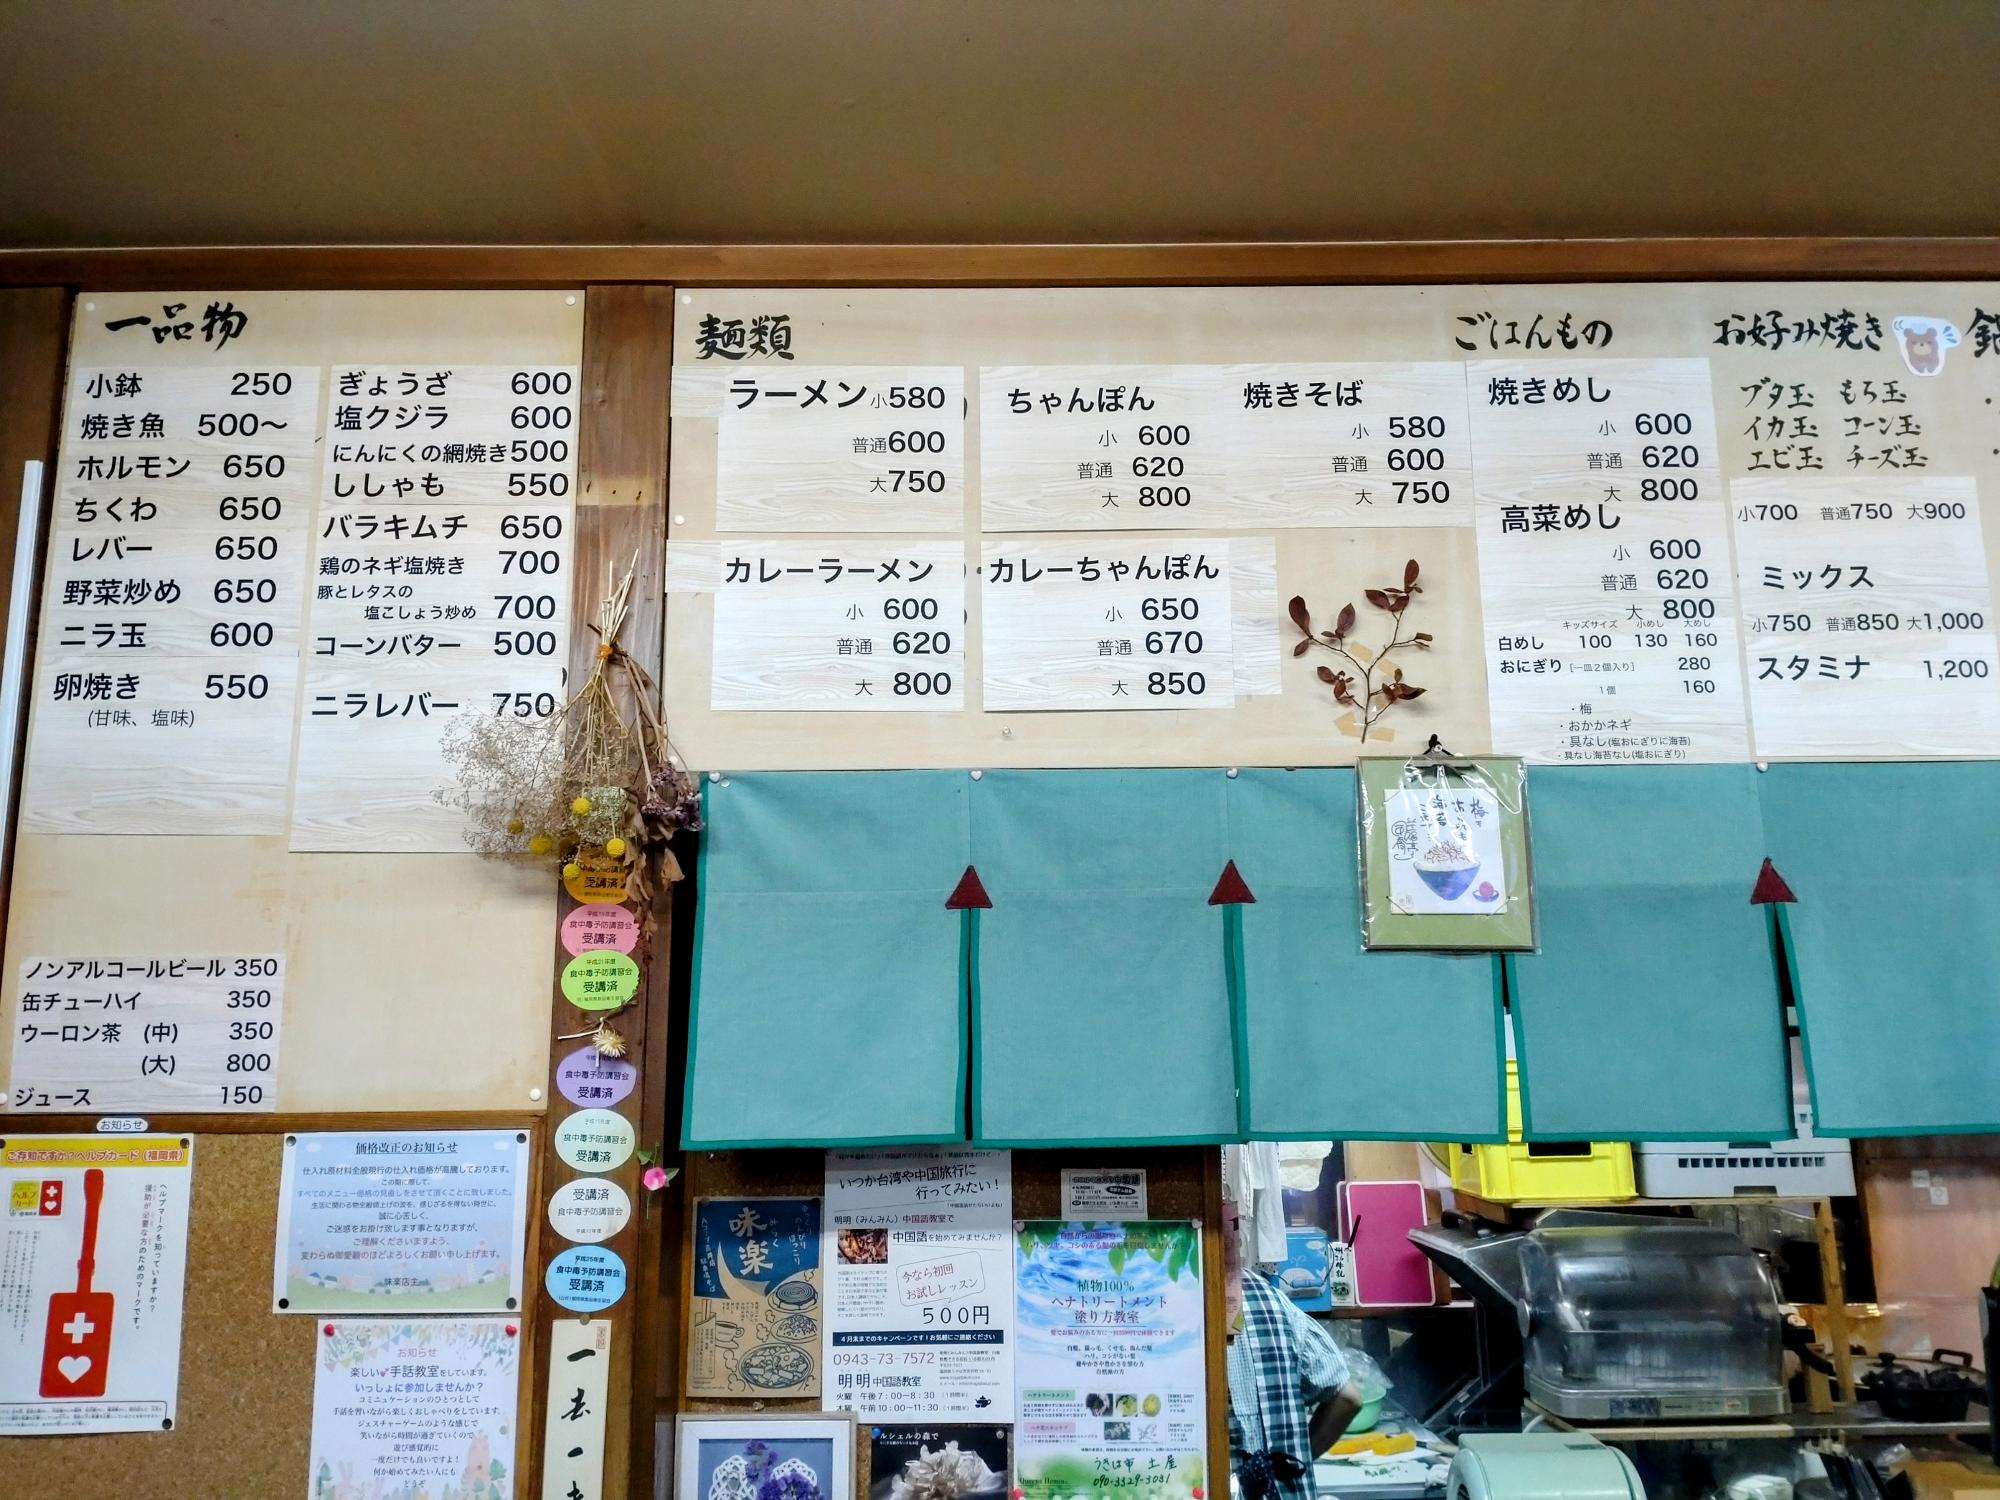 一品物
小鉢 250
焼き魚 500〜
ホルモン 650
ちくわ 650
レバー 650
野菜炒め 650
ニラ玉 600
卵焼き 550
(甘味、塩味)
ぎょうざ 600
塩クジラ 600
にんにくの網焼き500
ししゃも 550
バラキムチ 650
鶏のネギ塩焼き 700
豚とレタスの
塩こしょう炒め 700
コーンバター 500
ニラレバー 750
ノンアルコールビール 350
缶チューハイ 350
ウーロン茶 (中) 350
(大) 800
ジュース 150
麺類
ラーメン 小580
普通600
大750
ちゃんぽん
小 600
普通 620
大 800
焼きそば
小 580
普通 600
大 750
カレーラーメン
小 600
普通 620
大 800
カレーちゃんぽん
小 650
普通 670
大 850
ごはんもの
焼きめし
小 600
普通 620
大 800
高菜めし
小 600
普通 620
大 800
キッズサイズ 小めし 大めし
白めし 100 130 160
おにぎり [一皿2個入り] 280
1個 160
・梅
・おかかネギ
・具なし(塩おにぎりに海苔)
・具なし海苔なし(塩おにぎり)
お好み焼き
ブタ玉 もち玉
イカ玉 コーン玉
エビ玉 チーズ玉
小700 普通750 大900
ミックス
小750 普通850 大1,000
スタミナ 1,200
受講済
食中毒予防講習会
受講済
平成21年度
食中毒予防講習会
受講済
食中毒予防講習会
受講済
食中毒予防講習会
受講済
受講済
食中毒予防講習会
平成25年度
食中毒予防講習会
受講済
お知らせ
ご存知ですか?ヘルプカード(福岡県)
ヘルプマークを知っていますか?
援助が必要な方のためのマークです。
価格改正のお知らせ
仕入れ原材料全般現行の仕入れ価格が高騰しております。
この期に際して、
すべてのメニュー価格の見直しをさせて頂くことに致しました。
生活に関わる物全般値上げの波を、感じざるを得ない時世に、
誠に心苦しく、
ご迷惑をお掛け致します事となりますが、
ご理解くださいますよう、
変わらぬ御愛顧のほどよろしくお願い申し上げます。
味楽店主
お知らせ
楽しい手話教室をしています。
いっしょに参加しませんか?
コミニュケーションのひとつとして
手話を習いながら楽しくおしゃべりをしています。
ジェスチャーゲームのような感じで
笑いながら時間が過ぎていくので
遊び感覚的に
一度だけでも良いですよ!
何か始めてみたい人にも
どうぞ
一去一
味楽
みらく
いつか台湾や中国旅行に
行ってみたい!
明明(みんみん)中国語教室で
中国語を始めてみませんか?
今なら初回
お試しレッスン
500円
4月末までのキャンペーンです!お気軽にご連絡ください
0943-73-7572
明明中国語教室
火曜 午後7:00〜8:30
木曜 午前10:00〜11:30
植物100%
ヘナトリートメント
塗り方教室
白髪、薄っ毛、くせ毛、傷んだ髪
ハリ、コシがない髪
健やかさや豊かさを望む方
自然派の方
ヘナトリートメント
うきは市 土屋
090-3329-3081
ルシェルの森で